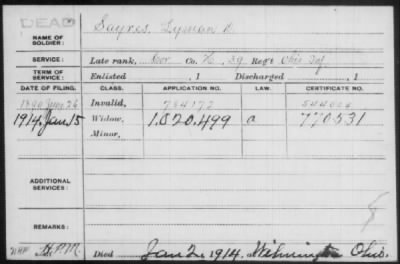 DEAD
NAME OF SOLDIER: Sayres, Lyman D.
SERVICE: Late rank, Cor Co. H, 59 Reg't Ohio Inf
TERM OF SERVICE: Enlisted , 1 Discharged , 1
DATE OF FILING. CLASS. APPLICATION NO. LAW. CERTIFICATE NO.
1890 June 26 Invalid, 784172
1914, Jan. 15 Widow, 1,020,499 a 770531
Minor,
ADDITIONAL SERVICES:
REMARKS:
Died Jan 2, 1914, at Wilmington Ohio.